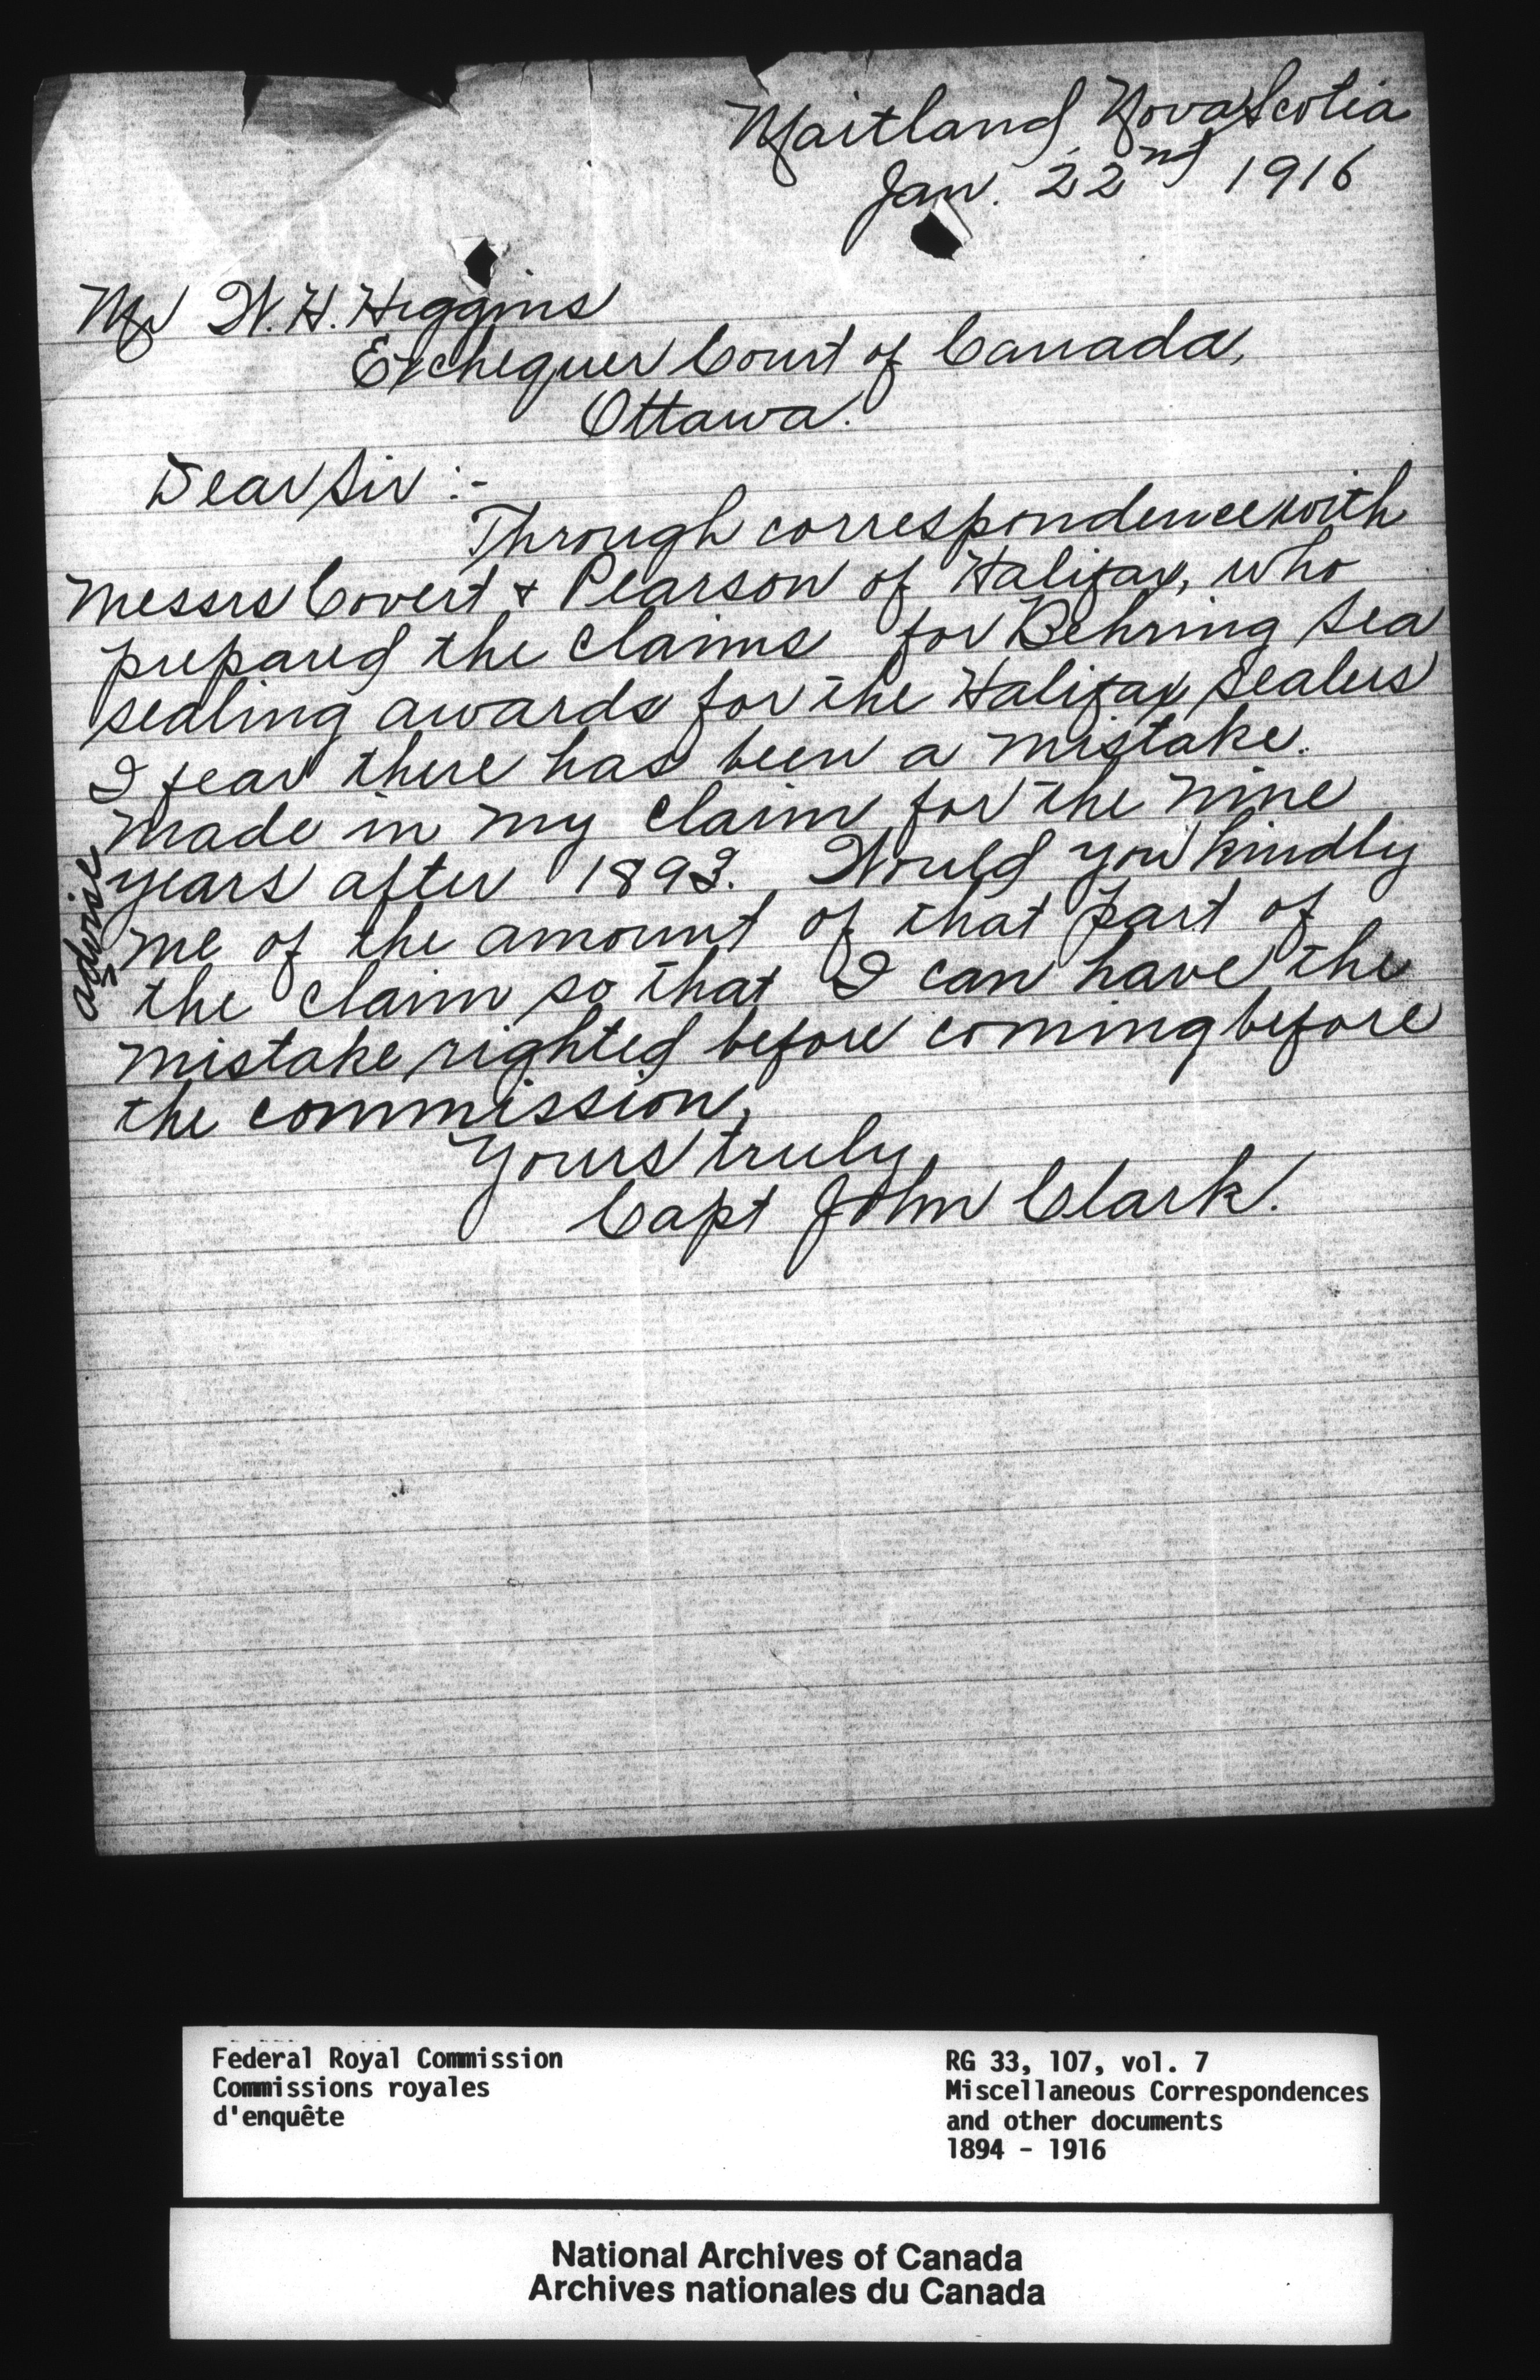 Maitland Nova Scotia
Jan. 22nd 1916
Mr W. H. Higgins
Exchequer Court of Canada,
Ottawa.
Dear Sir :-
Through correspondence with
Messrs Covert & Pearson of Halifax, who
prepared the claims for Behring Sea
sealing awards for the Halifax sealers
I fear there has been a mistake.
made in my claim for the nine
years after 1893. Would you kindly
advise
me of the amount of that part of
the claim so that I can have the
mistake righted before coming before
the commission,
Yours truly
Capt John Clark.
Federal Royal Commission
Commissions royales
d'enquête
RG 33, 107, vol. 7
Miscellaneous Correspondences
and other documents
1894 - 1916
National Archives of Canada
Archives nationales du Canada